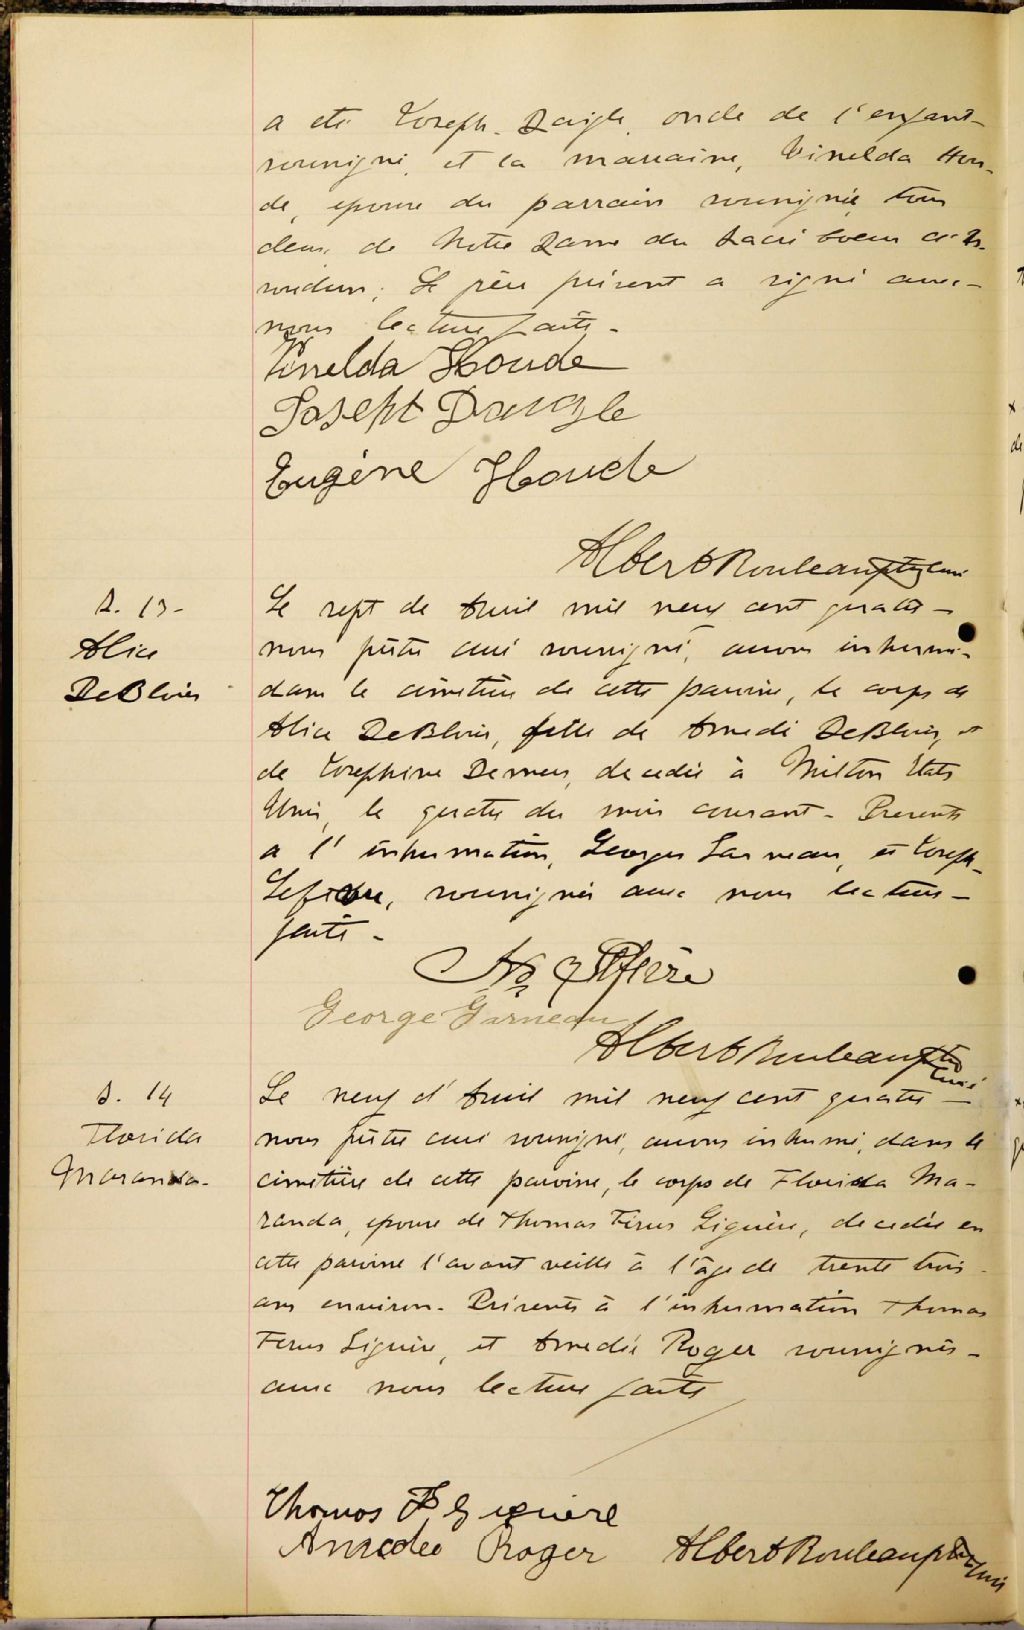 a été Joseph Daigle, oncle de l'enfant
soussigné, et la marraine, Vinelda Hou-
de, epouse du parrain soussignée, tous
deux de Notre Dame du Sacré Coeur d'Is-
soudun; Le père présent a signé avec
nous lecture faite -
Vinelda Houde
Joseph Daigle
Eugène Houde
Albert Rouleau ptre curé
S. 13-
Alice
DeBlois
Le sept de Avril mil neuf cent quatre -
nous prêtre curé soussigné, avons inhumé
dans le cimetière de cette paroisse, le corps de
Alice DeBlois, fille de Amédé DeBlois, et
de Josephine Demers, decedée à Milton États
Unis, le quatre du mois courant - Présents
a l'inhumation, Georges Garneau, et Joseph
Lefebvre, soussignés avec nous lecture -
faite -
Lefebvre
George Garneau
Albert Rouleau ptre
curé
S. 14
Florida
Maranda-
Le neuf d'Avril mil neuf cent quatre -
nous prêtre curé soussigné, avons inhumé, dans le
cimetière de cette paroisse, le corps de Florida Ma-
randa, epouse de Thomas Ferus Liguère, decedée en
cette paroisse l'avant veille à l'âge de trente trois
ans environ - Présents à l'inhumation Thomas
Ferus Liguère, et Amedée Roger soussignés -
avec nous lecture faite
Thomas
Amedée Roger
Albert Rouleau ptre curé